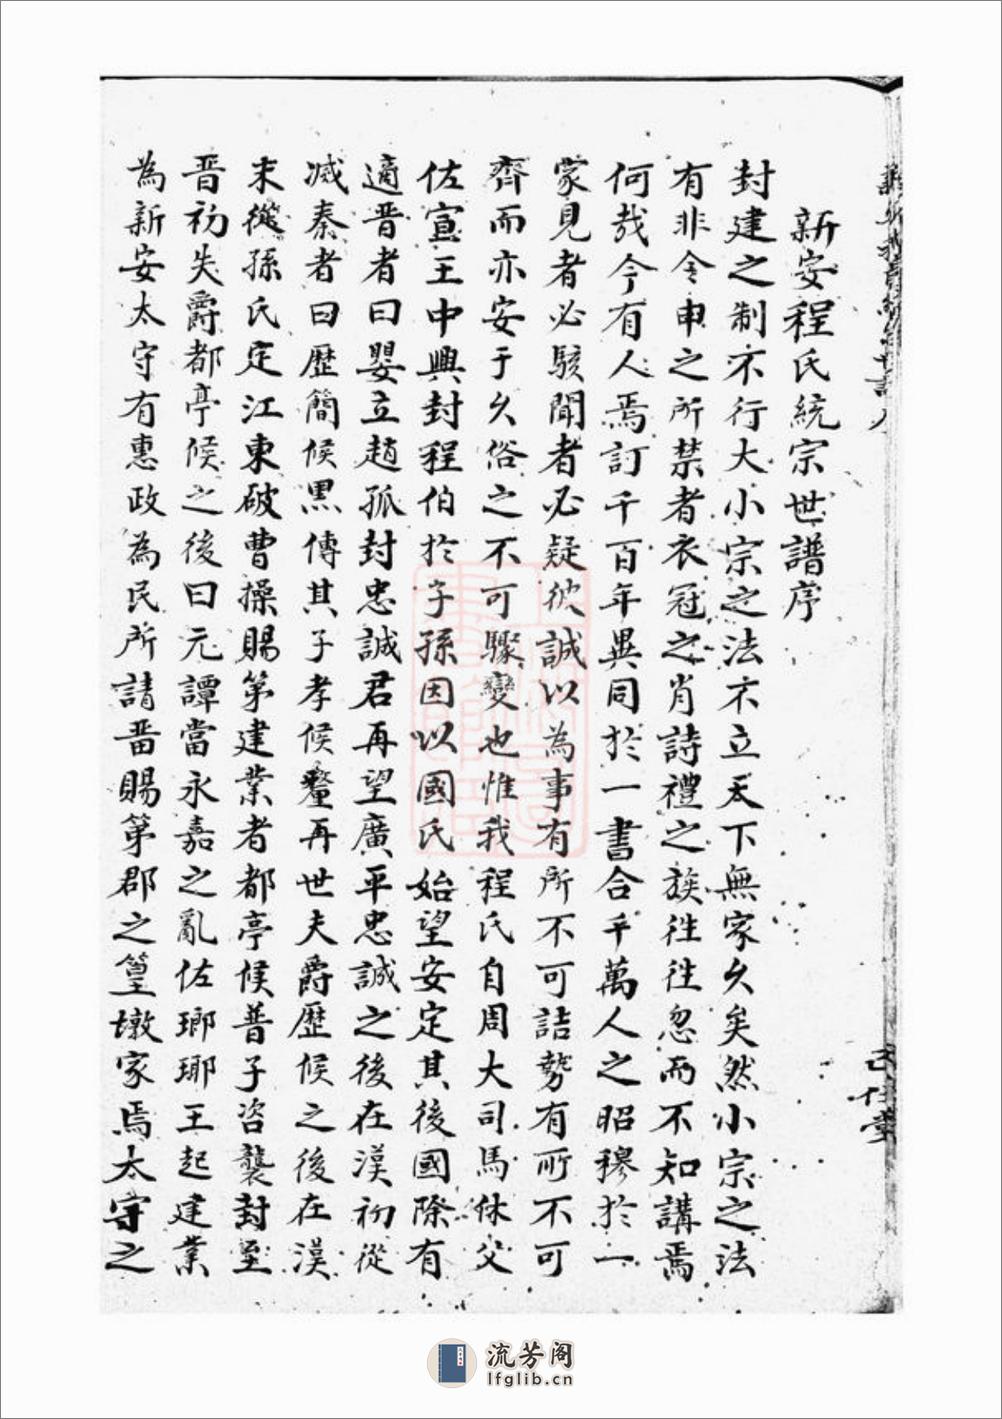 新安程氏統宗世譜序
封建之制不行大小宗之法不立天下無家久矣然小宗之法
有非令申之所禁者衣冠之肖詩禮之族徃徃忽而不知講焉
何哉今有人焉訂千百年異同於一書合千萬人之昭穆於一
家見者必駭聞者必疑彼誠以為事有所不可詰勢有所不可
齊而亦安于久俗之不可驟變也惟我程氏自周大司馬休父
佐宣王中興封程伯於字孫因以國氏始望安定其後國除有
適晋者曰嬰立趙孤封忠誠君再望廣平忠誠之後在漢初從
滅秦者曰歷簡候黑傳其子孝候釐再世夫爵歷候之後在漢
末從孫氏定江東破曹操賜第建業者都亭候普子咨襲封至
晋初失爵都亭候之後曰元譚當永嘉之亂佐瑯琊王起建業
為新安太守有惠政為民所請晋賜第郡之篁墩家焉太守之
流芳阁
lfglib.cn